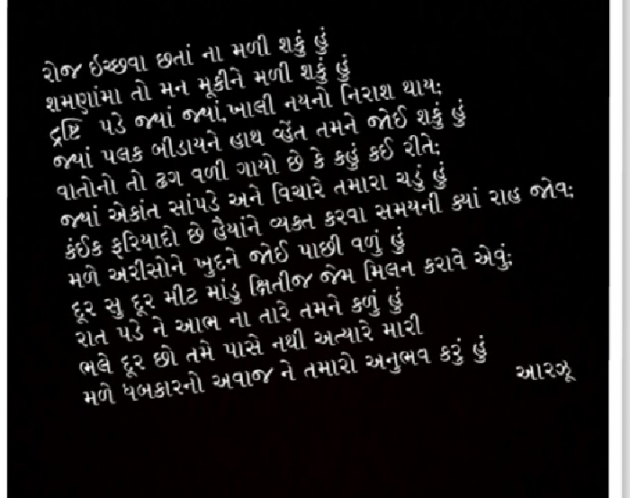 રોજ ઈચ્છવા છતાં ના મળી શકું હું
શમણાંમા તો મન મૂકીને મળી શકું હું
દ્રષ્ટિ પડે જ્યાં જ્યાં,ખાલી નયનો નિરાશ થાય;
જ્યાં પલક બીડાયને હાથ વ્હેંત તમને જોઈ શકું હું
વાતોનો તો ઢગ વળી ગાયો છે કે કહું કઈ રીતે;
જ્યાં એકાંત સાંપડે અને વિચારે તમારા ચડું હું
કંઈક ફરિયાદો છે હૈયાંને વ્યક્ત કરવા સમયની ક્યાં રાહ જોવ;
મળે અરીસોને ખુદને જોઈ પાછી વળું હું
દૂર સુ દૂર મીટ માંડુ ક્ષિતીજ જેમ મિલન કરાવે એવું;
રાત પડે ને આભ ના તારે તમને કળું હું
ભલે દૂર છો તમે પાસે નથી અત્યારે મારી
મળે ધબકારનો અવાજ ને તમારો અનુભવ કરું હું
આરઝૂ